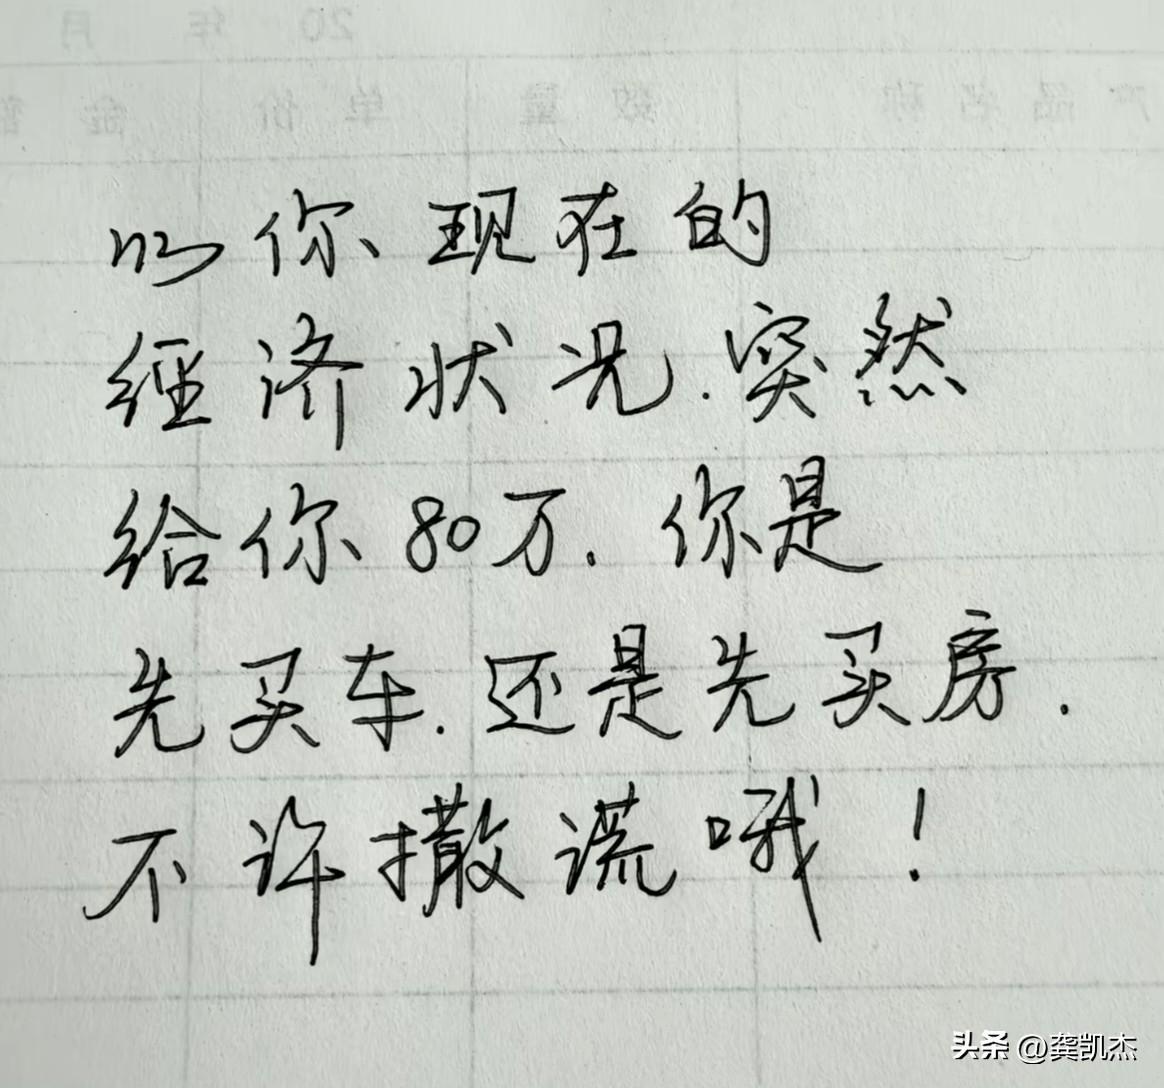 20 年 月
产品名称 数量 单价 金额
以你现在的
经济状况.突然
给你80万.你是
先买车.还是先买房.
不许撒谎哦!
头条 @龚凯杰